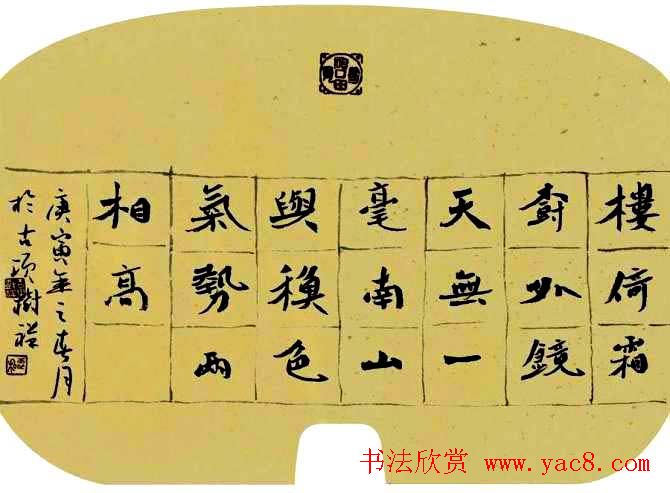 樓倚霜
尌外鏡
天無一
毫南山
與穐色
氣勢兩
相高
庚寅年之春月
於古項樹祥
书法欣赏 www.yac8.com